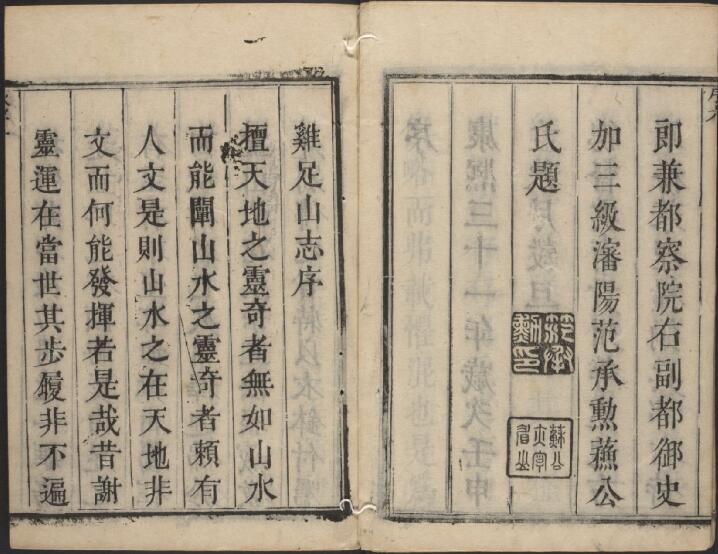 即兼都察院右副都御史
加三級瀋陽范承勳蘓公
氏題
范承
勳印
蘇公
眉山
雞足山志序
擅天地之靈奇者無如山水
而能闡山水之靈奇者頼有
人文是則山水之在天地非
文而何能發揮若是哉昔謝
靈運在當世其步履非不遍